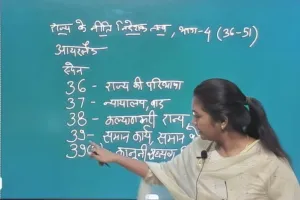 राज्य के नीति निदेशक तत्व, भाग-4 (36-51)
आयरलैंड
स्पेन
36 - राज्य की परिभाषा
37 - न्यायालय, वाद
38 - कल्याणकारी राज्य
39 - समान कार्य, समान
39 - कानूनी सहायता